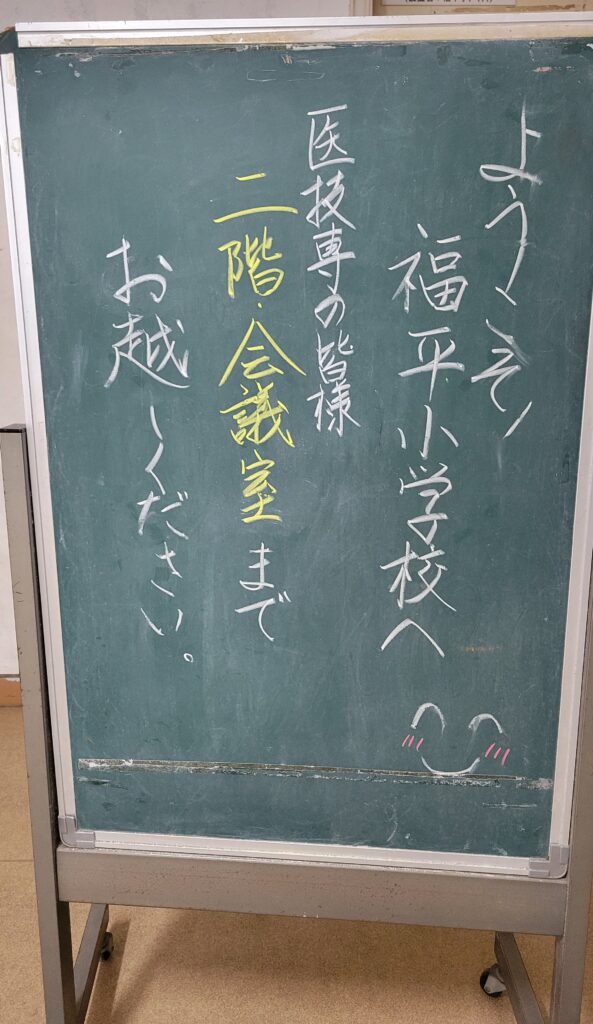 ようこそ
福平小学校へ
医技専の皆様
二階・会議室まで
お越しください。